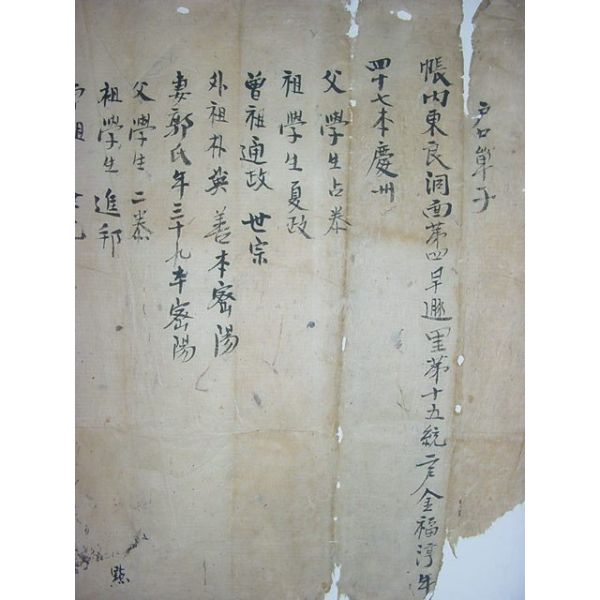 戶口單子
帳內東良洞面第四早遯里第十五統戶金福淳年
四十七本慶州
父學生占泰
祖學生夏政
曾祖通政世宗
外祖朴英善本密陽
妻郭氏年三十九本密陽
父學生二泰
祖學生進邦